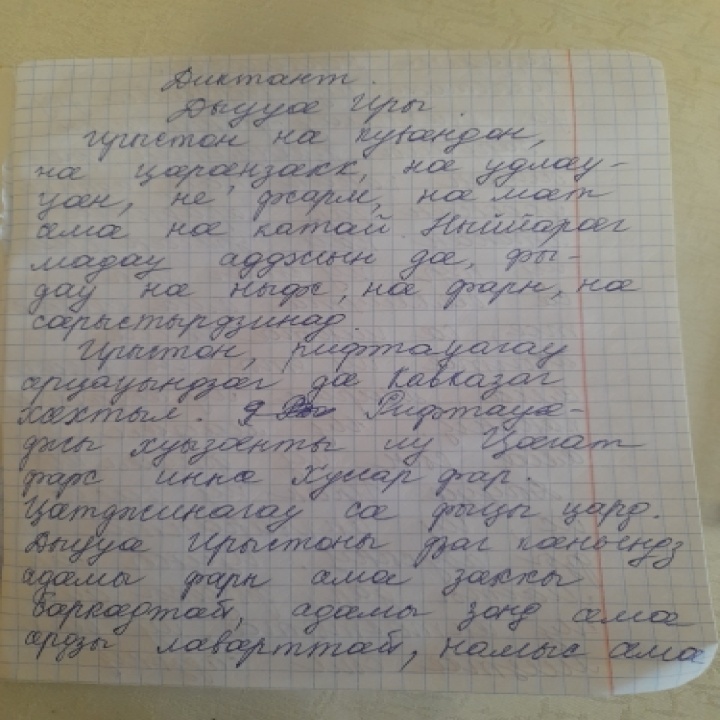 Диктант.
Дыууæ Иры.
Ирыстон нæ кувæндон,
нæ царæнзакк, нæ удлæу-
цæн, не фарм, нæ мæт
æмæ нæ катай. Ныййарæг
мадау адджын дæ, фы-
дау нæ ныфс, нæ фарн, нæ
сæрыстырдзинад.
Ирыстон, рифтæгау
æрцауындзæг дæ Кавказæг
хæхтыл. Рифтæгæ-
джы хуызæнты иу Цæгат
фарс иннæ Хуссар фар.
Цæтджинагау сæ фыцы цард.
Дыууæ Ирыстоны дзаг кæнынц
адæмы фарн æмæ заккы
бæркадтæй, адæмы зонд æмæ
æрдзы лæвæрттæй, намыс æмæ